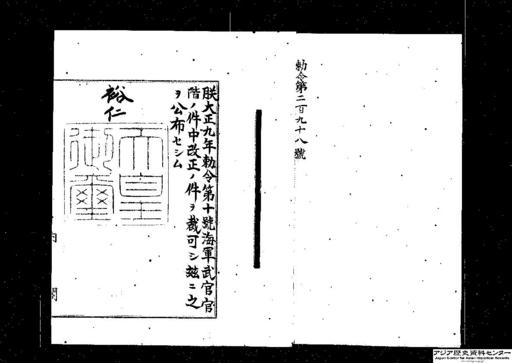 勅令第二百九十八號
朕大正九年勅令第十號海軍武官官
階ノ件中改正ノ件ヲ裁可シ茲ニ之
ヲ公布セシム
裕仁
天皇
御璽
内閣
アジア歴史資料センター
Japan Center for Asian Historical Records